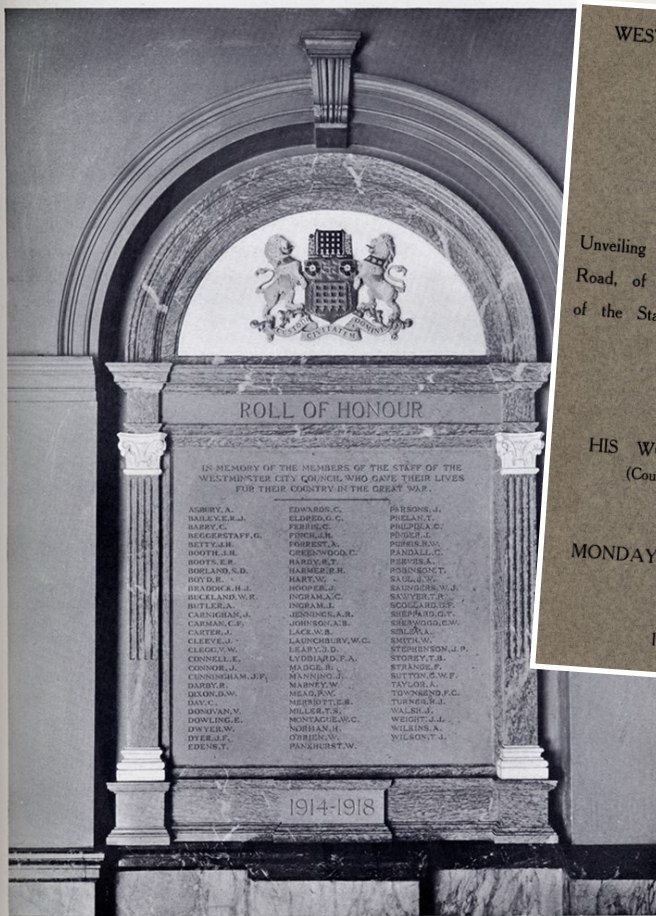 CUSTODI CIVITATEM DOMINE
ROLL OF HONOUR
IN MEMORY OF THE MEMBERS OF THE STAFF OF THE
WESTMINSTER CITY COUNCIL WHO GAVE THEIR LIVES
FOR THEIR COUNTRY IN THE GREAT WAR.
ASBURY, A.
BAILEY, E.R.J.
BARRY, C.
BEGGERSTAFF, G.
BETTY, J.H.
BOOTH, J.H.
BOOTS, E.R.
BORLAND, S.D.
BOYD, R.
BRADDICK, H.J.
BUCKLAND, W.R.
BUTLER, A.
CARNIGHAN, J.
CARMAN, C.F.
CARTER, J.
CLEEVE, J.
CLEGG, V.W.
CONNELL, E.
CONNOR, J.
CUNNINGHAM, J.F.
DARBY, R.
DIXON, D.W.
DAY, C.
DONOVAN, V.
DOWLING, E.
DWYER, W.
DYER, J.F.
EDENS, T.
EDWARDS, C.
ELDRED, G.C.
FERRIS, C.
FINCH, J.H.
FORREST, A.
GREENWOOD, C.
HARDY, R.T.
HARMER, R.H.
HART, W.
HOOPER, J.
INGRAM, A.C.
INGRAM, J.
JENNINGS, A.R.
JOHNSON, A.B.
LACK, W.B.
LAUNCHBURY, W.C.
LEARY, J.D.
LYDDIARD, F.A.
MADGE, R.
MANNING, J.
MARNEY, W.
MEAD, H.W.
MERRIOTT, E.S.
MILLER, T.S.
MONTAGUE, W.C.
NORMAN, H.
O'BRIEN, W.
PANKHURST, W.
PARSONS, J.
PHELAN, T.
PHILP, A.C.
PINGER, J.
PURKIS, H.W.
RANDALL, C.
REEVES, A.
ROBINSON, T.
SAUL, J.W.
SAUNDERS, W.J.
SAWYER, T.R.
SCOLLARD, D.F.
SHEPPARD, G.T.
SHERWOOD, C.W.
SIBLEY, A.
SMITH, W.
STEPHENSON, J.P.
STOREY, T.B.
STRANGE, F.
SUTTON, G.W.F.
TAYLOR, A.
TOWNSEND, F.C.
TURNER, H.J.
WALSH, J.
WEIGHT, J.J.
WILKINS, A.
WILSON, T.J.
1914-1918
WEST
Unveiling
Road, of
of the Sta
HIS W
(Cou
MONDAY